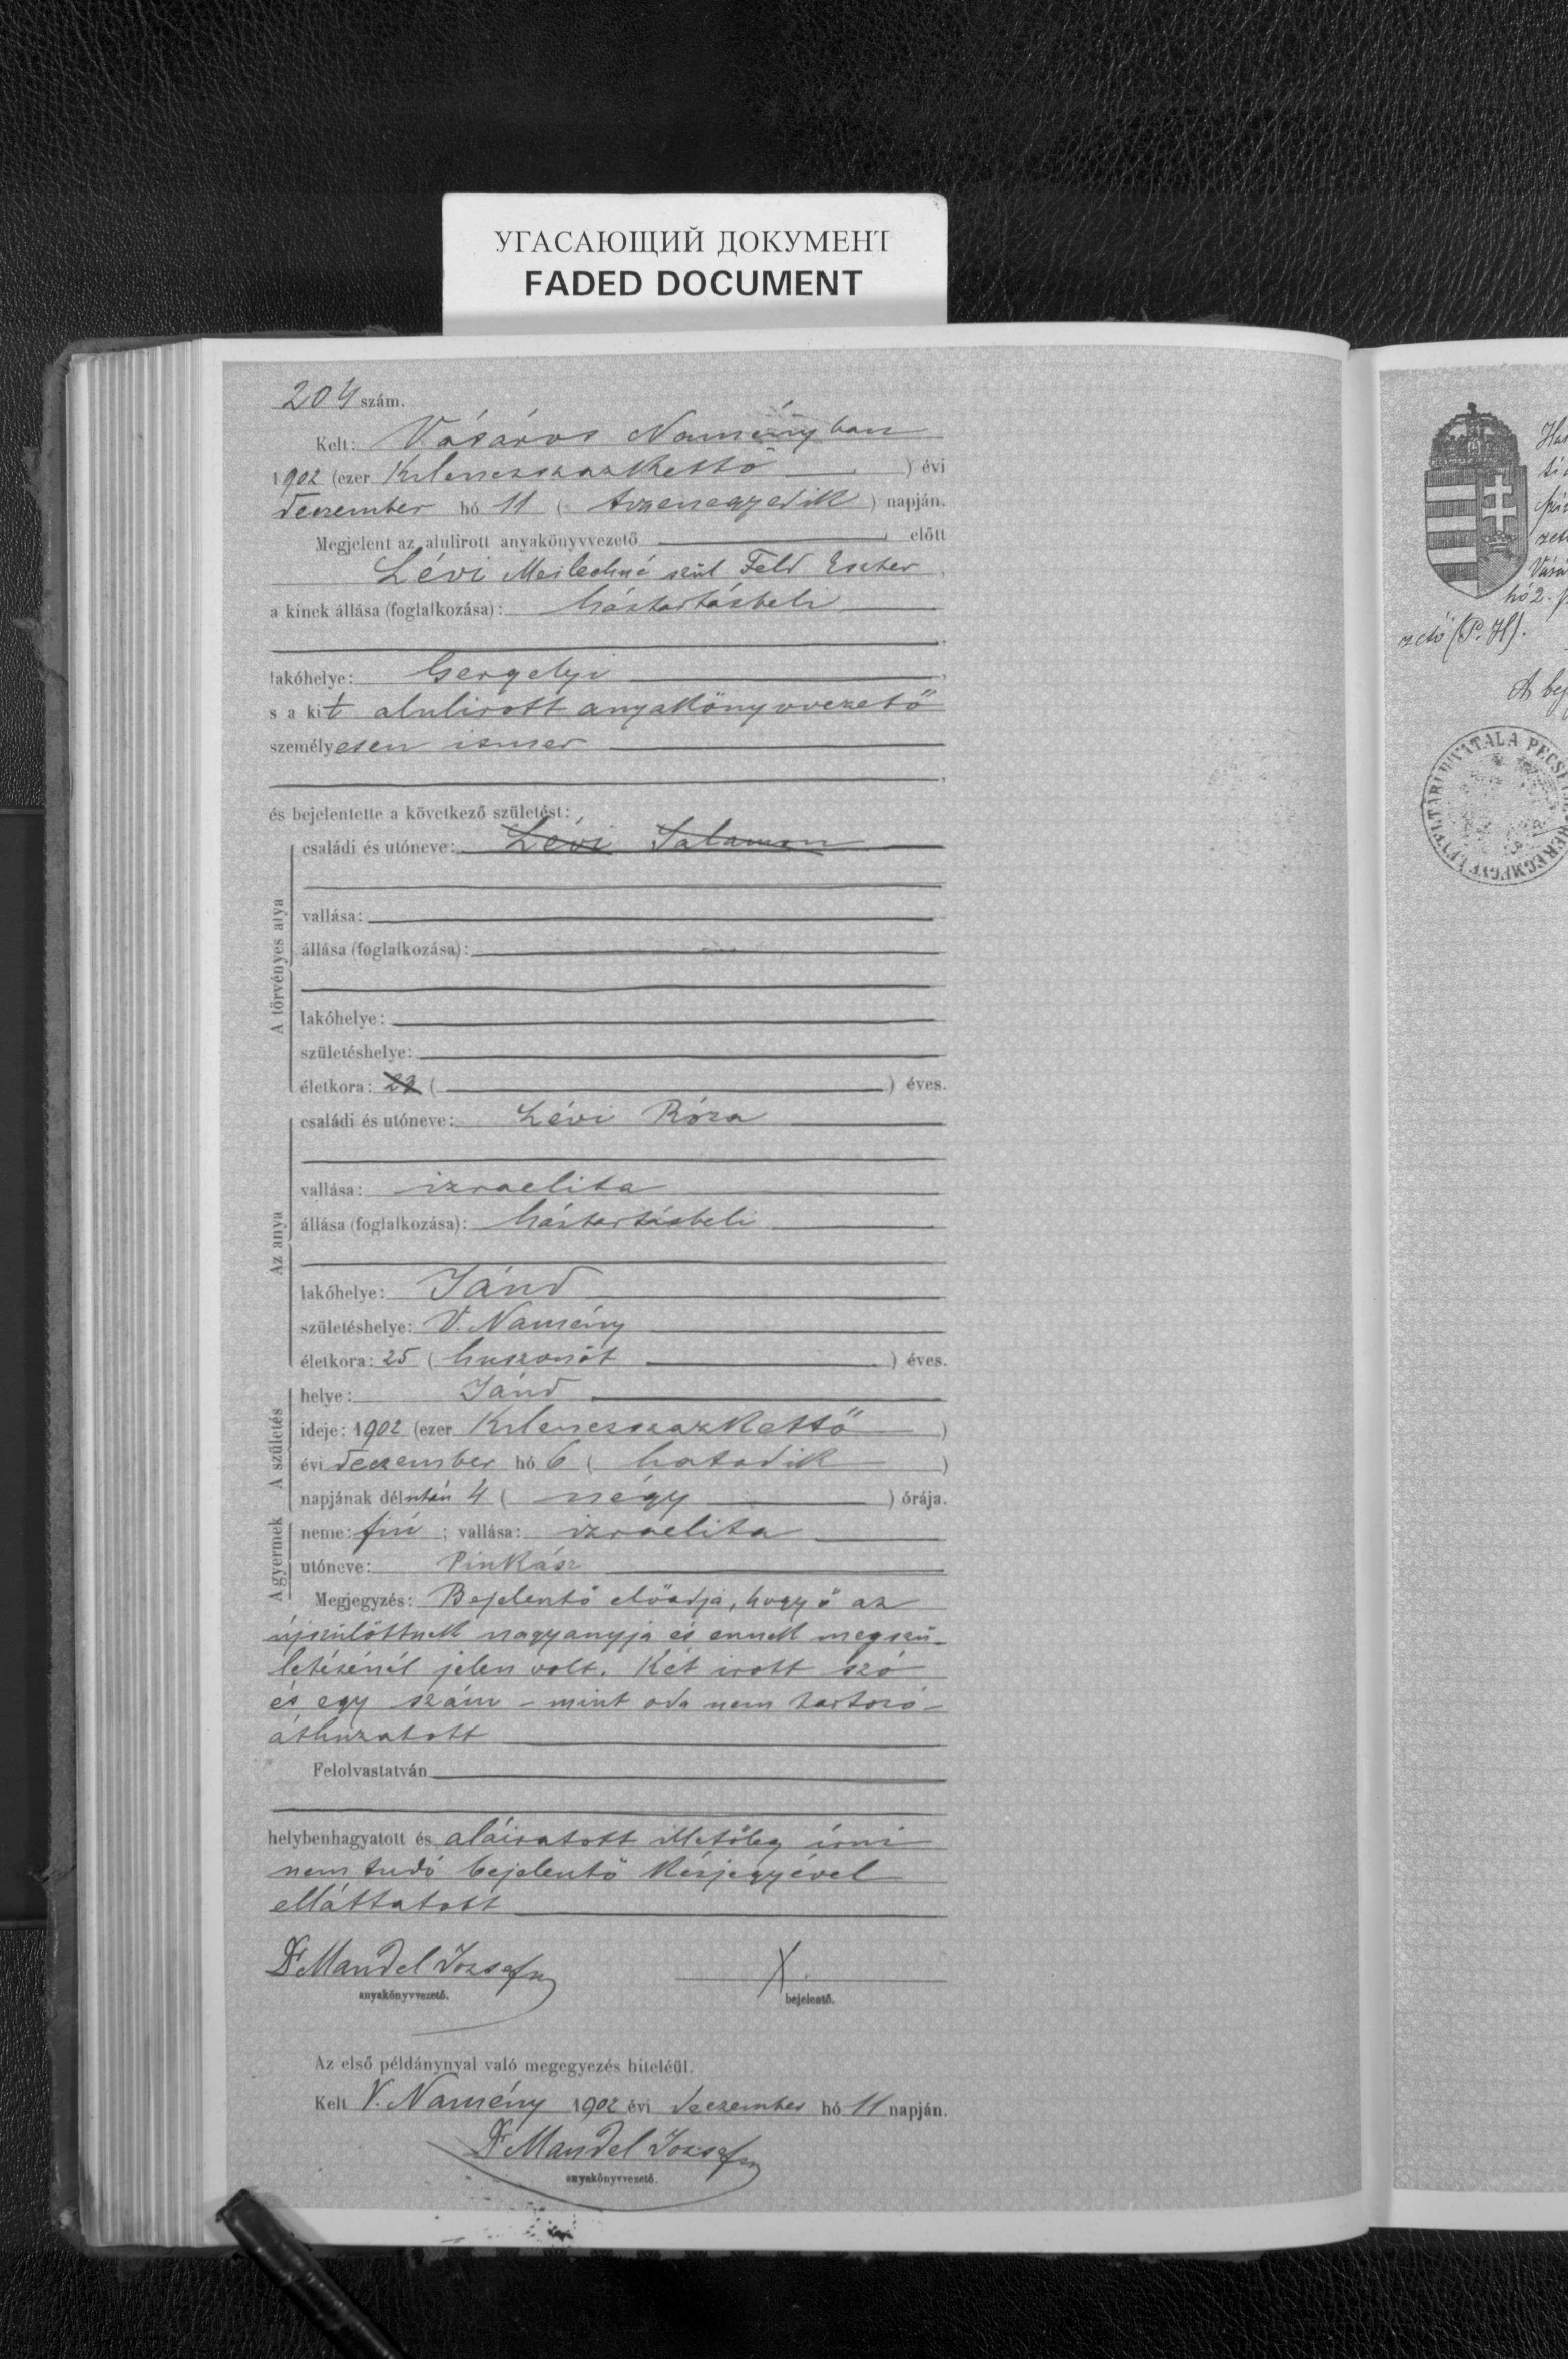 УГАСАЮЩИЙ ДОКУМЕНТ
FADED DOCUMENT
204 szám.
Kelt: Vásáros Naményban
1902 (ezer kilenczszazkettő ) évi
deczember hó 11 ( tizenegyedik ) napján.
Megjelent az alulirott anyakönyvvezető előtt
Lévi Meilechné szül Feld Eszter,
a kinek állása (foglalkozása): háztartásbeli
lakóhelye: Gergelyi
s a kit alulirott anyakönyvvezető
személyesen ismer
és bejelentette a következő születést:
A törvényes atya
családi és utóneve: Lévi Salamon
vallása:
állása (foglalkozása):
lakóhelye:
születéshelye:
életkora: ( ) éves.
Az anya
családi és utóneve: Lévi Róza
vallása: izraelita
állása (foglalkozása): háztartásbeli
lakóhelye: Jánd
születéshelye: V. Namény
életkora: 25 ( huszonöt ) éves.
A születés
helye: Jánd
ideje: 1902 (ezer kilenczszazkettő )
évi deczember hó 6 ( hatodik )
napjának délután 4 ( négy ) órája.
A gyermek
neme: fiú ; vallása: izraelita
utóneve: Pinkász
Megjegyzés: Bejelentő előadja, hogy ő az
újszülöttnek nagyanyja és ennek megszü-
letésénél jelen volt. Két irott szó
és egy szám – mint oda nem tartozó –
áthuzatott
Felolvastatván
helybenhagyatott és aláiratott illetőleg írni
nem tudó bejelentő kézjegyével
elláttatott
Dr Mandel József X
anyakönyvvezető. bejelentő.
Az első példánynyal való megegyezés hiteléül.
Kelt V. Namény 1902 évi deczember hó 11 napján.
Dr Mandel József
anyakönyvvezető.
Vásá
hó 2.
zető (P. H).
A bej